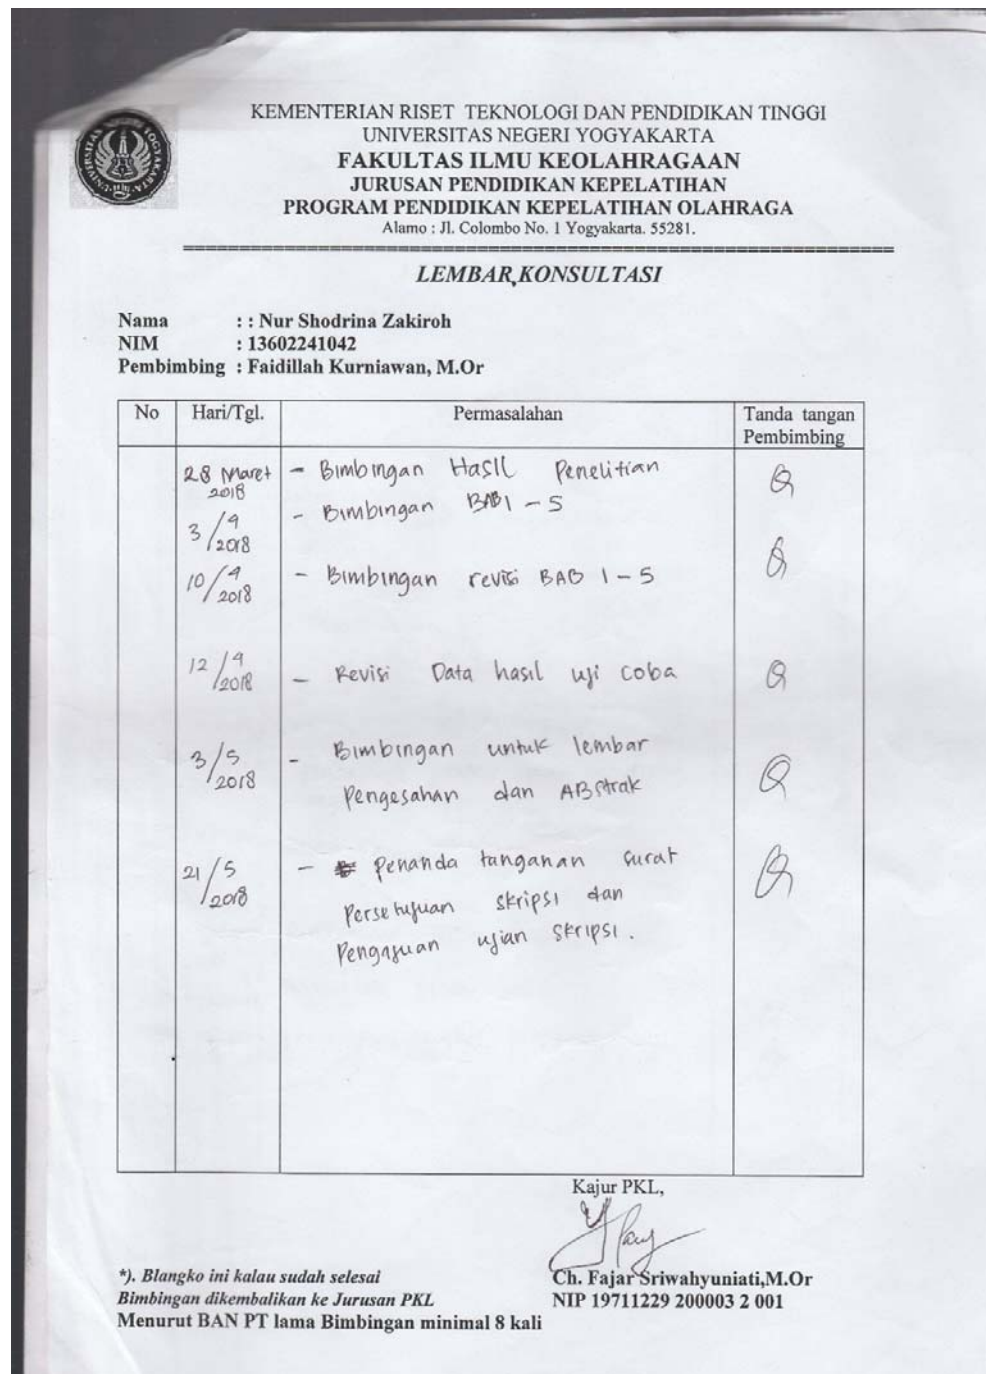 KEMENTERIAN RISET TEKNOLOGI DAN PENDIDIKAN TINGGI
UNIVERSITAS NEGERI YOGYAKARTA
FAKULTAS ILMU KEOLAHRAGAAN
JURUSAN PENDIDIKAN KEPELATIHAN
PROGRAM PENDIDIKAN KEPELATIHAN OLAHRAGA
Alamo : Jl. Colombo No. 1 Yogyakarta. 55281.
LEMBAR KONSULTASI
Nama : : Nur Shodrina Zakiroh
NIM : 13602241042
Pembimbing : Faidillah Kurniawan, M.Or
No Hari/Tgl. Permasalahan Tanda tangan
Pembimbing
28 Maret - Bimbingan Hasil Penelitian
2018
3/4 - Bimbingan BAB 1 - 5
2018
10/4 - Bimbingan revisi BAB 1 - 5
2018
12/4 - Revisi Data hasil uji coba
2018
3/5 - Bimbingan untuk lembar
2018 Pengesahan dan ABstrak
21/5 - Penanda tanganan surat
2018 Persetujuan skripsi dan
Pengajuan ujian skripsi.
Kajur PKL,
*). Blangko ini kalau sudah selesai
Bimbingan dikembalikan ke Jurusan PKL
Menurut BAN PT lama Bimbingan minimal 8 kali
Ch. Fajar Sriwahyuniati,M.Or
NIP 19711229 200003 2 001